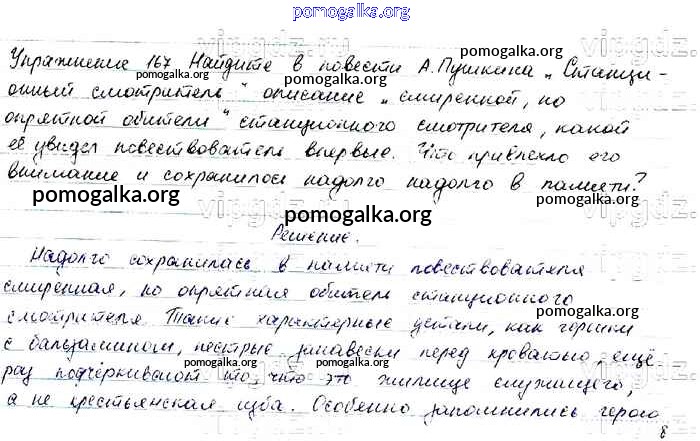 pomogalka.org
Упражнение 167 Найдите в повести А.Пушкина „Станци-
онный смотритель" описание „смиренной, но
опрятной обители" станционного смотрителя, какой
её увидел повествователь впервые. Что привлекло его
внимание и сохранилось надолго надолго в памяти?
Решение.
Надолго сохранилась в памяти повествователя
смиренная, но опрятная обитель станционного
смотрителя. Такие характерные детали, как горшки
с бальзамином, пестрые занавески перед кроватью, ещё
раз подчёркивают то, что это жилище служищего,
а не крестьянская изба. Особенно запомнились герою
8